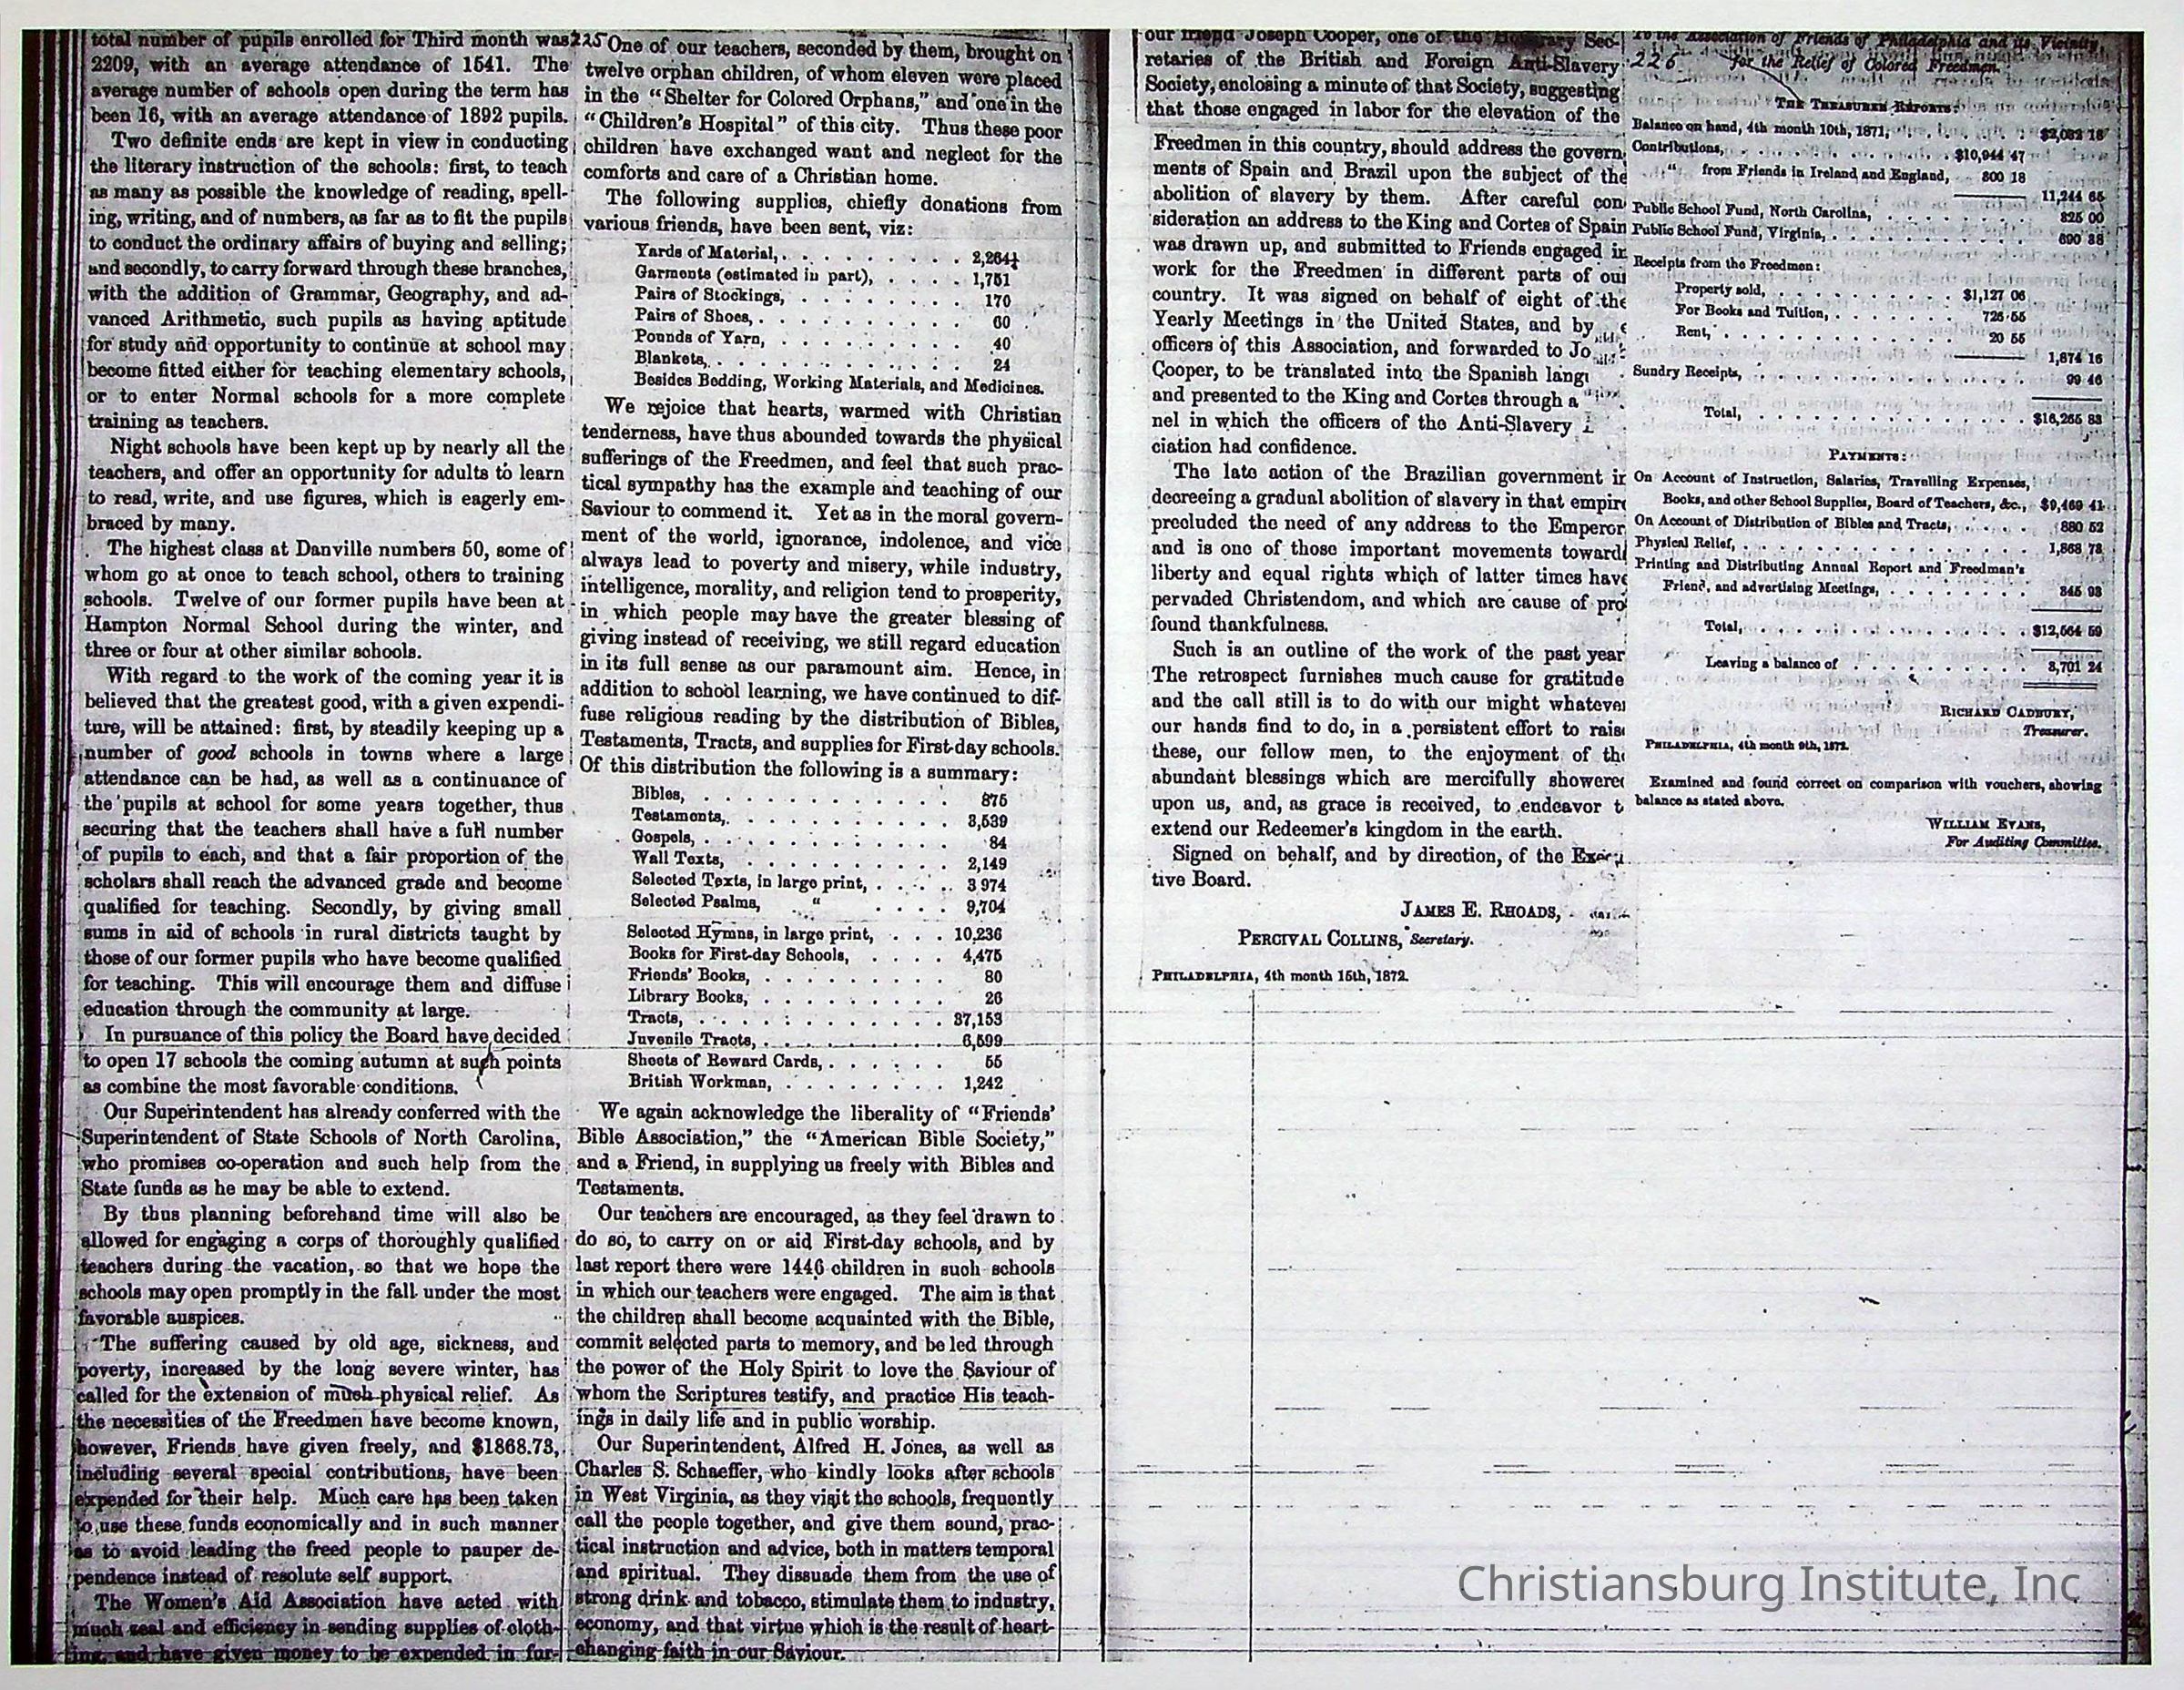 total number of pupils enrolled for Third month was
2209, with an average attendance of 1541. The
average number of schools open during the term has
been 16, with an average attendance of 1892 pupils.
Two definite ends are kept in view in conducting
the literary instruction of the schools: first, to teach
as many as possible the knowledge of reading, spell-
ing, writing, and of numbers, as far as to fit the pupils
to conduct the ordinary affairs of buying and selling;
and secondly, to carry forward through these branches,
with the addition of Grammar, Geography, and ad-
vanced Arithmetic, such pupils as having aptitude
for study and opportunity to continue at school may
become fitted either for teaching elementary schools,
or to enter Normal schools for a more complete
training as teachers.
Night schools have been kept up by nearly all the
teachers, and offer an opportunity for adults to learn
to read, write, and use figures, which is eagerly em-
braced by many.
The highest class at Danville numbers 50, some of
whom go at once to teach school, others to training
schools. Twelve of our former pupils have been at
Hampton Normal School during the winter, and
three or four at other similar schools.
With regard to the work of the coming year it is
believed that the greatest good, with a given expendi-
ture, will be attained: first, by steadily keeping up a
number of good schools in towns where a large
attendance can be had, as well as a continuance of
the pupils at school for some years together, thus
securing that the teachers shall have a full number
of pupils to each, and that a fair proportion of the
scholars shall reach the advanced grade and become
qualified for teaching. Secondly, by giving small
sums in aid of schools in rural districts taught by
those of our former pupils who have become qualified
for teaching. This will encourage them and diffuse
education through the community at large.
In pursuance of this policy the Board have decided
to open 17 schools the coming autumn at such points
as combine the most favorable conditions.
Our Superintendent has already conferred with the
Superintendent of State Schools of North Carolina,
who promises co-operation and such help from the
State funds as he may be able to extend.
By thus planning beforehand time will also be
allowed for engaging a corps of thoroughly qualified
teachers during the vacation, so that we hope the
schools may open promptly in the fall under the most
favorable auspices.
The suffering caused by old age, sickness, and
poverty, increased by the long severe winter, has
called for the extension of much physical relief. As
the necessities of the Freedmen have become known,
however, Friends have given freely, and $1868.73,
including several special contributions, have been
expended for their help. Much care has been taken
to use these funds economically and in such manner
as to avoid leading the freed people to pauper de-
pendence instead of resolute self support.
The Women's Aid Association have acted with
much zeal and efficiency in sending supplies of cloth-
ing, and have given money to be expended in fur-
225 One of our teachers, seconded by them, brought on
twelve orphan children, of whom eleven were placed
in the "Shelter for Colored Orphans," and one in the
"Children's Hospital" of this city. Thus these poor
children have exchanged want and neglect for the
comforts and care of a Christian home.
The following supplies, chiefly donations from
various friends, have been sent, viz:
Yards of Material, . . . . . . . . . 2,264½
Garments (estimated in part), . . . . 1,751
Pairs of Stockings, . . . . . . . . . 170
Pairs of Shoes, . . . . . . . . . . 60
Pounds of Yarn, . . . . . . . . . 40
Blankets, . . . . . . . . . . . . 24
Besides Bedding, Working Materials, and Medicines.
We rejoice that hearts, warmed with Christian
tenderness, have thus abounded towards the physical
sufferings of the Freedmen, and feel that such prac-
tical sympathy has the example and teaching of our
Saviour to commend it. Yet as in the moral govern-
ment of the world, ignorance, indolence, and vice
always lead to poverty and misery, while industry,
intelligence, morality, and religion tend to prosperity,
in which people may have the greater blessing of
giving instead of receiving, we still regard education
in its full sense as our paramount aim. Hence, in
addition to school learning, we have continued to dif-
fuse religious reading by the distribution of Bibles,
Testaments, Tracts, and supplies for First-day schools.
Of this distribution the following is a summary:
Bibles, . . . . . . . . . . . . 875
Testaments, . . . . . . . . . . 3,539
Gospels, . . . . . . . . . . . 84
Wall Texts, . . . . . . . . . . 2,149
Selected Texts, in large print, . . . . 3 974
Selected Psalms, " . . . . 9,704
Selected Hymns, in large print, . . . 10,236
Books for First-day Schools, . . . . 4,475
Friends' Books, . . . . . . . . . 80
Library Books, . . . . . . . . . 26
Tracts, . . . . . . . . . . . . 37,153
Juvenile Tracts, . . . . . . . . . 6,599
Sheets of Reward Cards, . . . . . . 55
British Workman, . . . . . . . . 1,242
We again acknowledge the liberality of "Friends'
Bible Association," the "American Bible Society,"
and a Friend, in supplying us freely with Bibles and
Testaments.
Our teachers are encouraged, as they feel drawn to
do so, to carry on or aid First-day schools, and by
last report there were 1446 children in such schools
in which our teachers were engaged. The aim is that
the children shall become acquainted with the Bible,
commit selected parts to memory, and be led through
the power of the Holy Spirit to love the Saviour of
whom the Scriptures testify, and practice His teach-
ings in daily life and in public worship.
Our Superintendent, Alfred H. Jones, as well as
Charles S. Schaeffer, who kindly looks after schools
in West Virginia, as they visit the schools, frequently
call the people together, and give them sound, prac-
tical instruction and advice, both in matters temporal
and spiritual. They dissuade them from the use of
strong drink and tobacco, stimulate them to industry,
economy, and that virtue which is the result of heart-
changing faith in our Saviour.
our friend Joseph Cooper, one of the Honorary Sec-
retaries of the British and Foreign Anti-Slavery
Society, enclosing a minute of that Society, suggesting
that those engaged in labor for the elevation of the
Freedmen in this country, should address the govern
ments of Spain and Brazil upon the subject of the
abolition of slavery by them. After careful con
sideration an address to the King and Cortes of Spain
was drawn up, and submitted to Friends engaged in
work for the Freedmen in different parts of our
country. It was signed on behalf of eight of the
Yearly Meetings in the United States, and by
officers of this Association, and forwarded to Jo
Cooper, to be translated into the Spanish lang
and presented to the King and Cortes through a
nel in which the officers of the Anti-Slavery
ciation had confidence.
The late action of the Brazilian government in
decreeing a gradual abolition of slavery in that empire
precluded the need of any address to the Emperor
and is one of those important movements toward
liberty and equal rights which of latter times have
pervaded Christendom, and which are cause of pro
found thankfulness.
Such is an outline of the work of the past year
The retrospect furnishes much cause for gratitude
and the call still is to do with our might whatever
our hands find to do, in a persistent effort to raise
these, our fellow men, to the enjoyment of the
abundant blessings which are mercifully showered
upon us, and, as grace is received, to endeavor t
extend our Redeemer's kingdom in the earth.
Signed on behalf, and by direction, of the Execu
tive Board.
JAMES E. RHOADS,
PERCIVAL COLLINS, Secretary.
PHILADELPHIA, 4th month 15th, 1872.
To the Association of Friends of Philadelphia and its Vicinity,
226 for the Relief of Colored Freedmen.
THE TREASURER REPORTS:
Balance on hand, 4th month 10th, 1871, . . . . $2,032 18
Contributions, . . . . . . . . . . $10,944 47
" from Friends in Ireland and England, 300 18
11,244 65
Public School Fund, North Carolina, . . . . . . . 325 00
Public School Fund, Virginia, . . . . . . . . . 690 38
Receipts from the Freedmen:
Property sold, . . . . . . . . . . $1,127 06
For Books and Tuition, . . . . . . . 726 55
Rent, . . . . . . . . . . . . 20 55
1,874 16
Sundry Receipts, . . . . . . . . . . . . . 99 46
Total, . . . . . . . . . . . . . $16,265 83
PAYMENTS:
On Account of Instruction, Salaries, Travelling Expenses,
Books, and other School Supplies, Board of Teachers, &c., $9,469 41
On Account of Distribution of Bibles and Tracts, . . . . 880 52
Physical Relief, . . . . . . . . . . . . . 1,868 73
Printing and Distributing Annual Report and Freedman's
Friend, and advertising Meetings, . . . . . . . . 345 93
Total, . . . . . . . . . . . . . $12,564 59
Leaving a balance of . . . . . . . . . 3,701 24
RICHARD CADBURY,
Treasurer.
PHILADELPHIA, 4th month 9th, 1872.
Examined and found correct on comparison with vouchers, showing
balance as stated above.
WILLIAM EVANS,
For Auditing Committee.
Christiansburg Institute, Inc